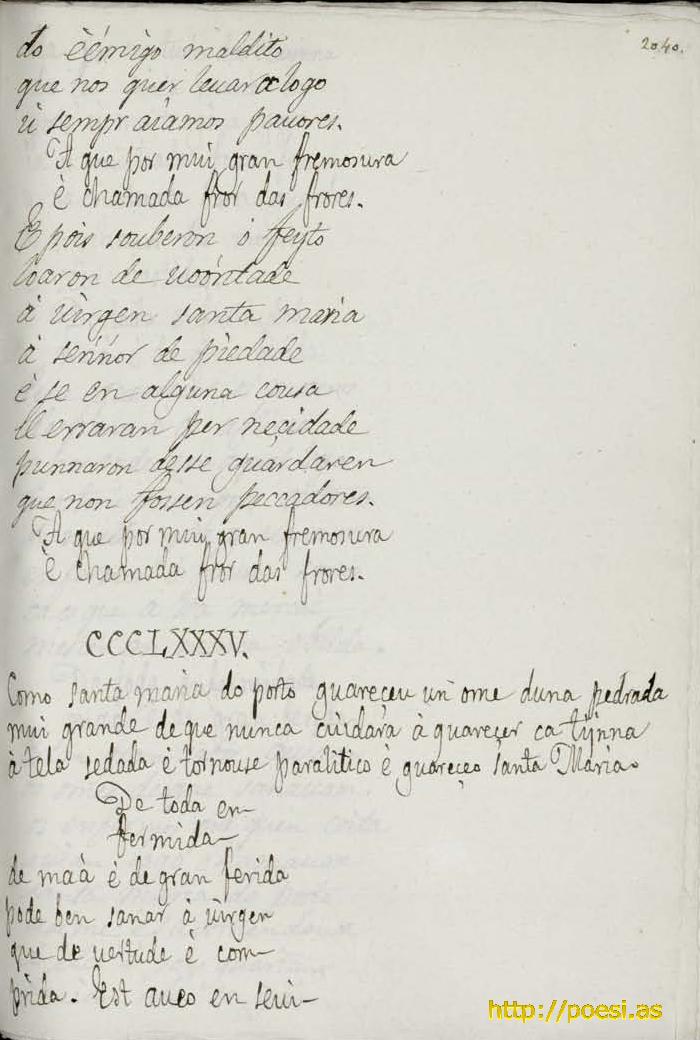 2040.
do ẽémigo maldito
que nos quer levar a logo
ú sempr aiamos pauores.
A que por mui gran fremosura
è chamada fror das frores.
E pois souberon ó feyto
loaron de uoóntade
à uirgen santa maria
à sennor de piedade
è se en alguna cousa
ll erraran per neçidade
punnaron de sse guardaren
que non fossen peccadores.
A que por mui gran fremosura
è chamada fror das frores.
CCCLXXXV.
Como santa maria do porto guareçeu un ome duna pedrada
mui grande de que nunca cuidara à guareçer ca tijnna
à tela sedada è tornouse paralitico è guareçeo Santa Maria.
De toda en-
fermida-
de maà è de gran ferida
pode ben sanar à uirgen
que de uertude è com-
prida. Est aueo en seui-
http://poesi.as